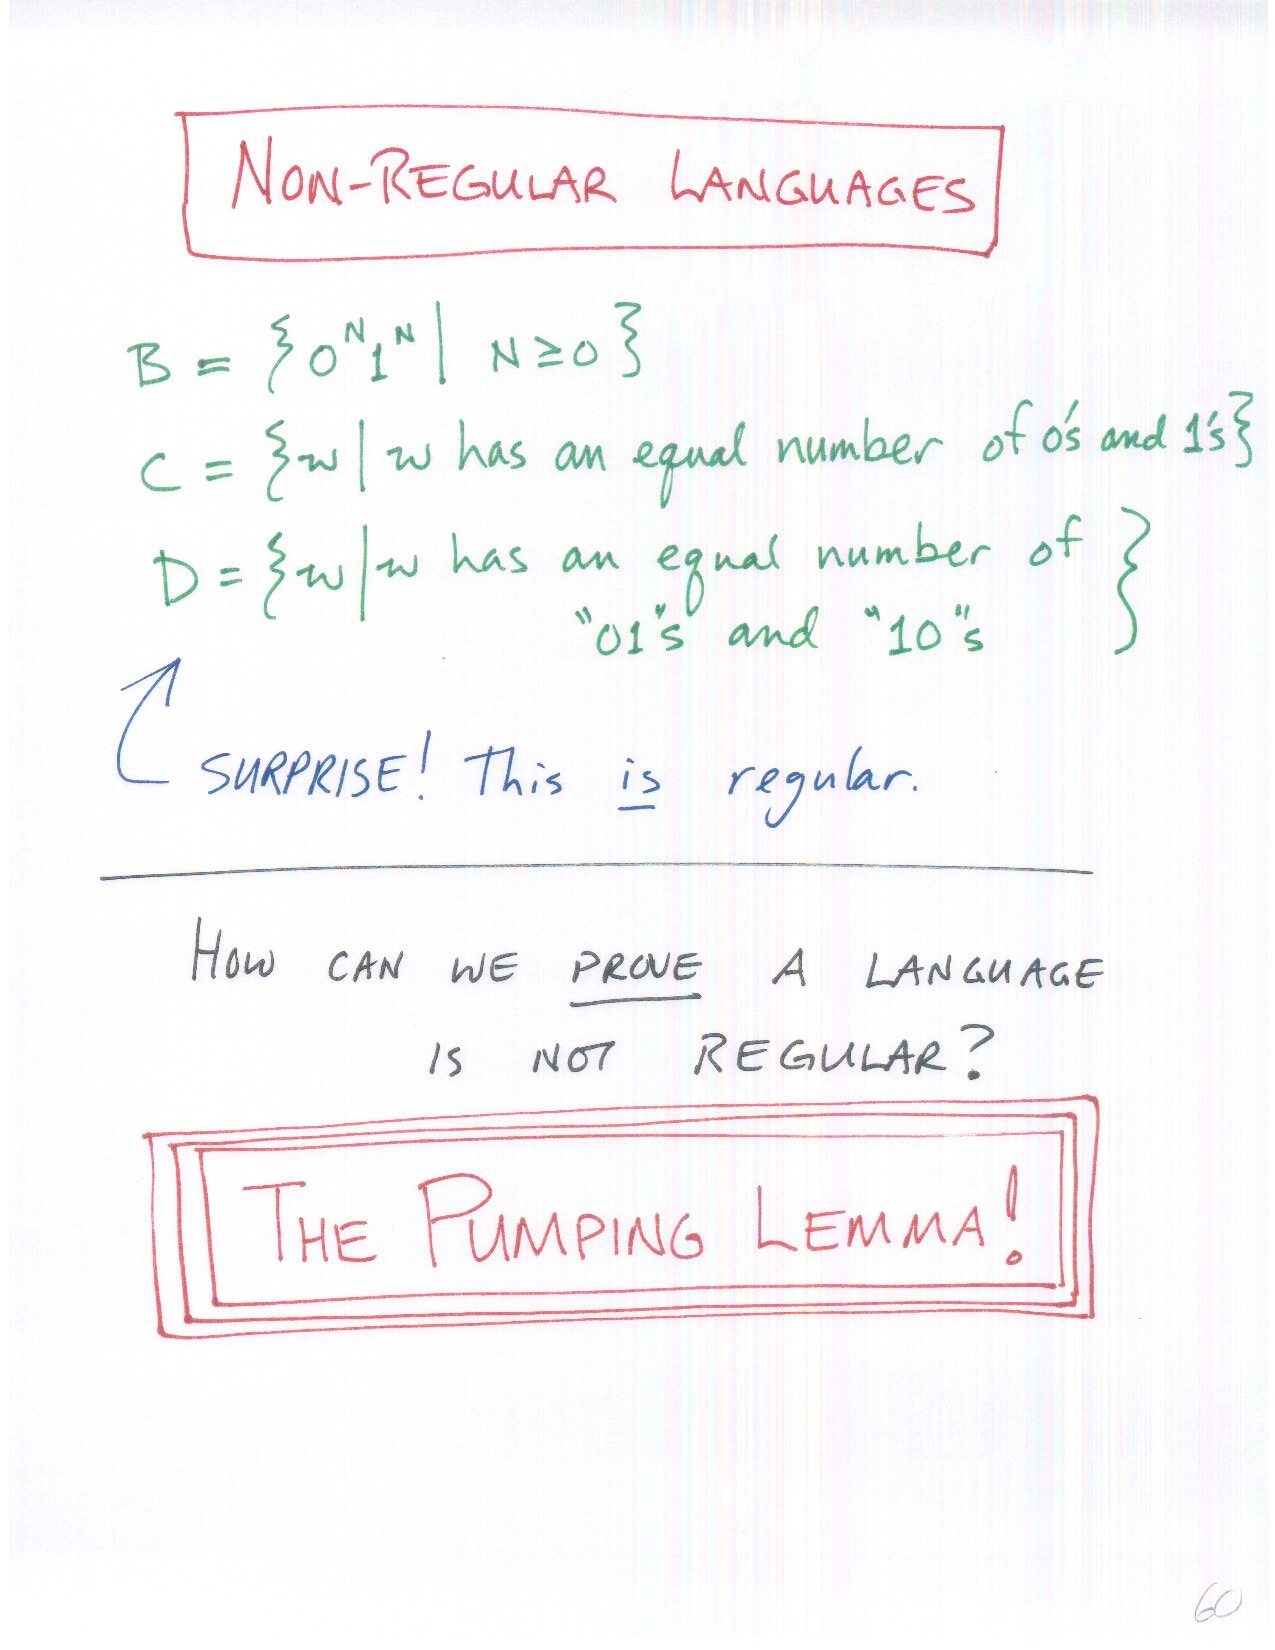 NON-REGULAR LANGUAGES
B = {0ᴺ1ᴺ | N≥0}
C = {w | w has an equal number of 0's and 1's}
D = {w | w has an equal number of
"01"s and "10"s}
SURPRISE! This is regular.
HOW CAN WE PROVE A LANGUAGE
IS NOT REGULAR?
THE PUMPING LEMMA!
60